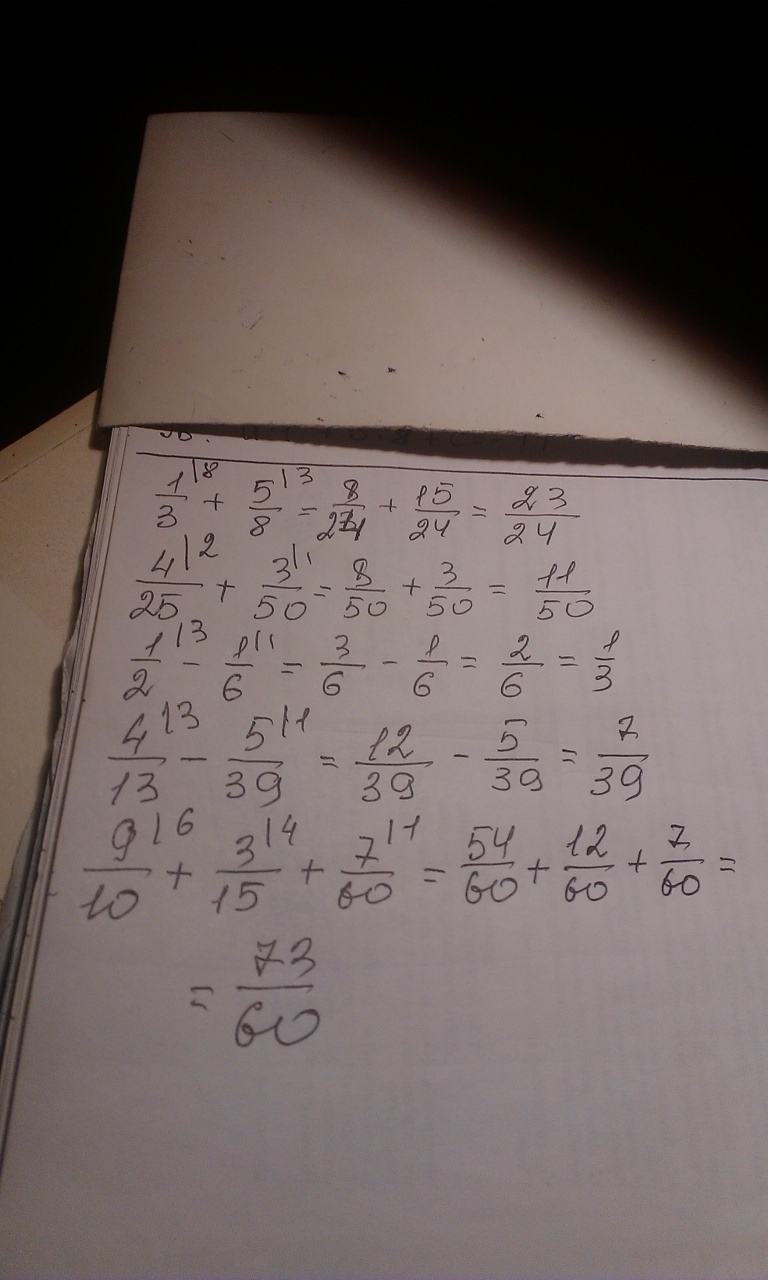 1/3 |8 + 5/8 |3 = 8/24 + 15/24 = 23/24
4/25 |2 + 3/50 |1 = 8/50 + 3/50 = 11/50
1/2 |3 - 1/6 |1 = 3/6 - 1/6 = 2/6 = 1/3
4/13 |3 - 5/39 |1 = 12/39 - 5/39 = 7/39
9/10 |6 + 3/15 |4 + 7/60 |1 = 54/60 + 12/60 + 7/60 =
= 73/60